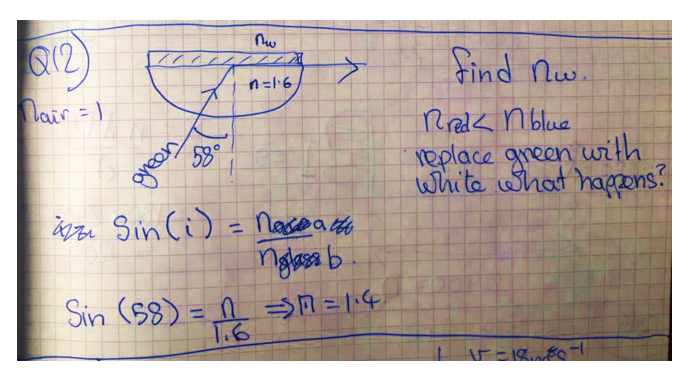 Q12)
nw
n=1.6
nair = 1
green
58°
find nw.
nred < nblue
replace green with
white what happens?
Sin(i) = na
nb.
Sin (58) = n/1.6 ⇒ n = 1.4